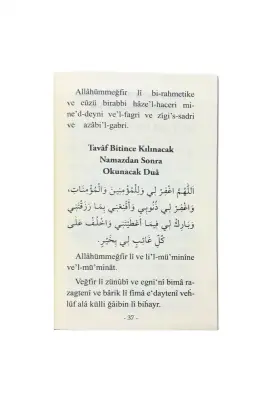 Allâhümmeğfir lî bi-rahmetike
ve eûzü birabbi hâze'l-haceri mi-
ne'd-deyni ve'l-fagri ve zîgi's-sadri
ve azâbi'l-gabri.
Tavâf Bitince Kılınacak
Namazdan Sonra
Okunacak Duâ
اَللّٰهُمَّ اغْفِرْ لِي وَلِلْمُؤْمِنِينَ وَالْمُؤْمِنَاتِ،
وَاغْفِرْ لِي ذُنُوبِي وَأَقْنِعْنِي بِمَا رَزَقْتَنِي
وَبَارِكْ لِي فِيمَا أَعْطَيْتَنِي وَاخْلُفْ عَلَى
كُلِّ غَائِبٍ لِي بِخَيْرٍ.
Allâhümmeğfir lî ve li'l-mü'minîne
ve'l-mü'minât.
Veğfir lî zünûbî ve egni'nî bimâ ra-
zagtenî ve bârik lî fîmâ e'daytenî veh-
lüf alâ külli ğâibin lî bihayr.
- 37 -